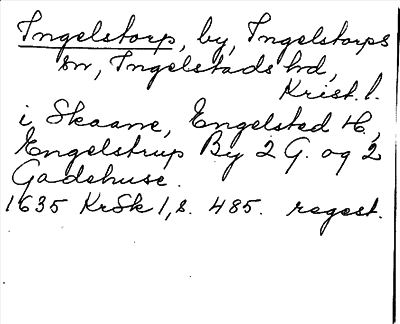 Ingelstorp, by, Ingelstorps
sn, Ingelstads hd,
Krist. l.
i Skaane, Engelsted H,
Engelstrup By 2 G. og 2
Gadehuse.
1635 KrSk 1, s. 485. regest.